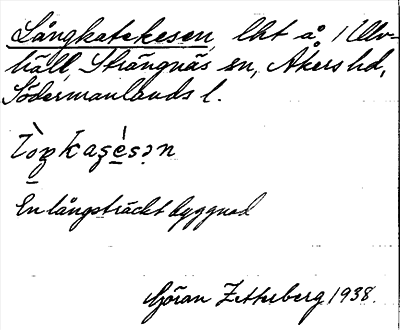 Långkatekesen, lht å 1 Ulv-
häll, Strängnäs sn, Åkers hd,
Södermanlands l.
En långsträckt byggnad
Göran Zetterberg 1938.